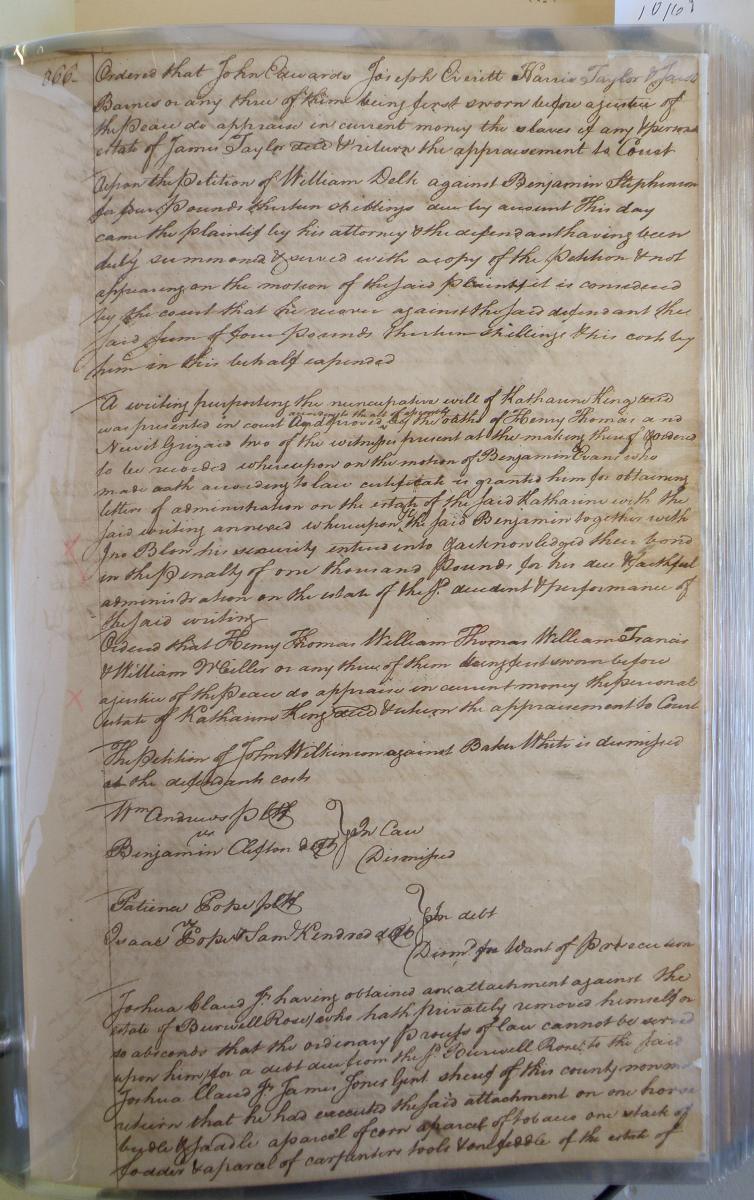 366
Ordered that John Edwards Joseph Everitt Harris Taylor & Jacob
Barnes or any three of them being first sworn before a justice of
the peace do appraise in current money the slaves if any & personal
estate of James Taylor decd & return the appraisement to Court
Upon the Petition of William Delk against Benjamin Stephenson
for four Pounds thirteen shillings due by account This day
came the plaintif by his attorney & the defendant having been
duly summoned & served with a copy of the Petition & not
appearing on the motion of the said plaintif it is considered
by the court that he recover against the said defendant the
said sum of four Pounds thirteen shillings & his costs by
him in this behalf expended
A writing purporting the nuncupative will of Katharine King decd
according to the act of assembly
was presented in court and proved by the oaths of Henry Thomas and
Newit Grizard two of the witnesses present at the making thereof & ordered
to be recorded whereupon on the motion of Benjamin Evans who
made oath according to law certificate is granted him for obtaining
letters of administration on the estate of the said Katharine with the
said writing annexed whereupon the said Benjamin together with
Jno Blow his security entered into & acknowledged their bond
in the Penalty of one thousand Pounds for his due & faithful
administration on the estate of the sd. decedent & performance of
the said writing
Ordered that Henry Thomas William Thomas William Francis
& William Miller or any three of them being first sworn before
a justice of the peace do appraise in current money the personal
estate of Katharine King decd & return the appraisement to Court
The Petition of John Wilkinson against Baker White is dismissed
at the defendants costs
Wm Andrews pltf
vs
Benjamin Clifton deft
In Case
Dismissed
Patience Pope pltf
vs
Isaac Pope & Saml Kindred defts
In debt
Dismd. for Want of Prosecution
Joshua Claud Jr having obtained an attachment against the
estate of Burwell Rose who hath privately removed himself or
so absconds that the ordinary Process of law cannot be served
upon him for a debt due from the sd. Burwell Rose to the said
Joshua Claud Jr James Jones Gent sherif of this county now made
return that he had executed the said attachment on one horse
bridle & saddle a parcel of corn a parcel of tobacco one stack of
fodder & a parcel of carpenters tools & one fiddle of the estate of